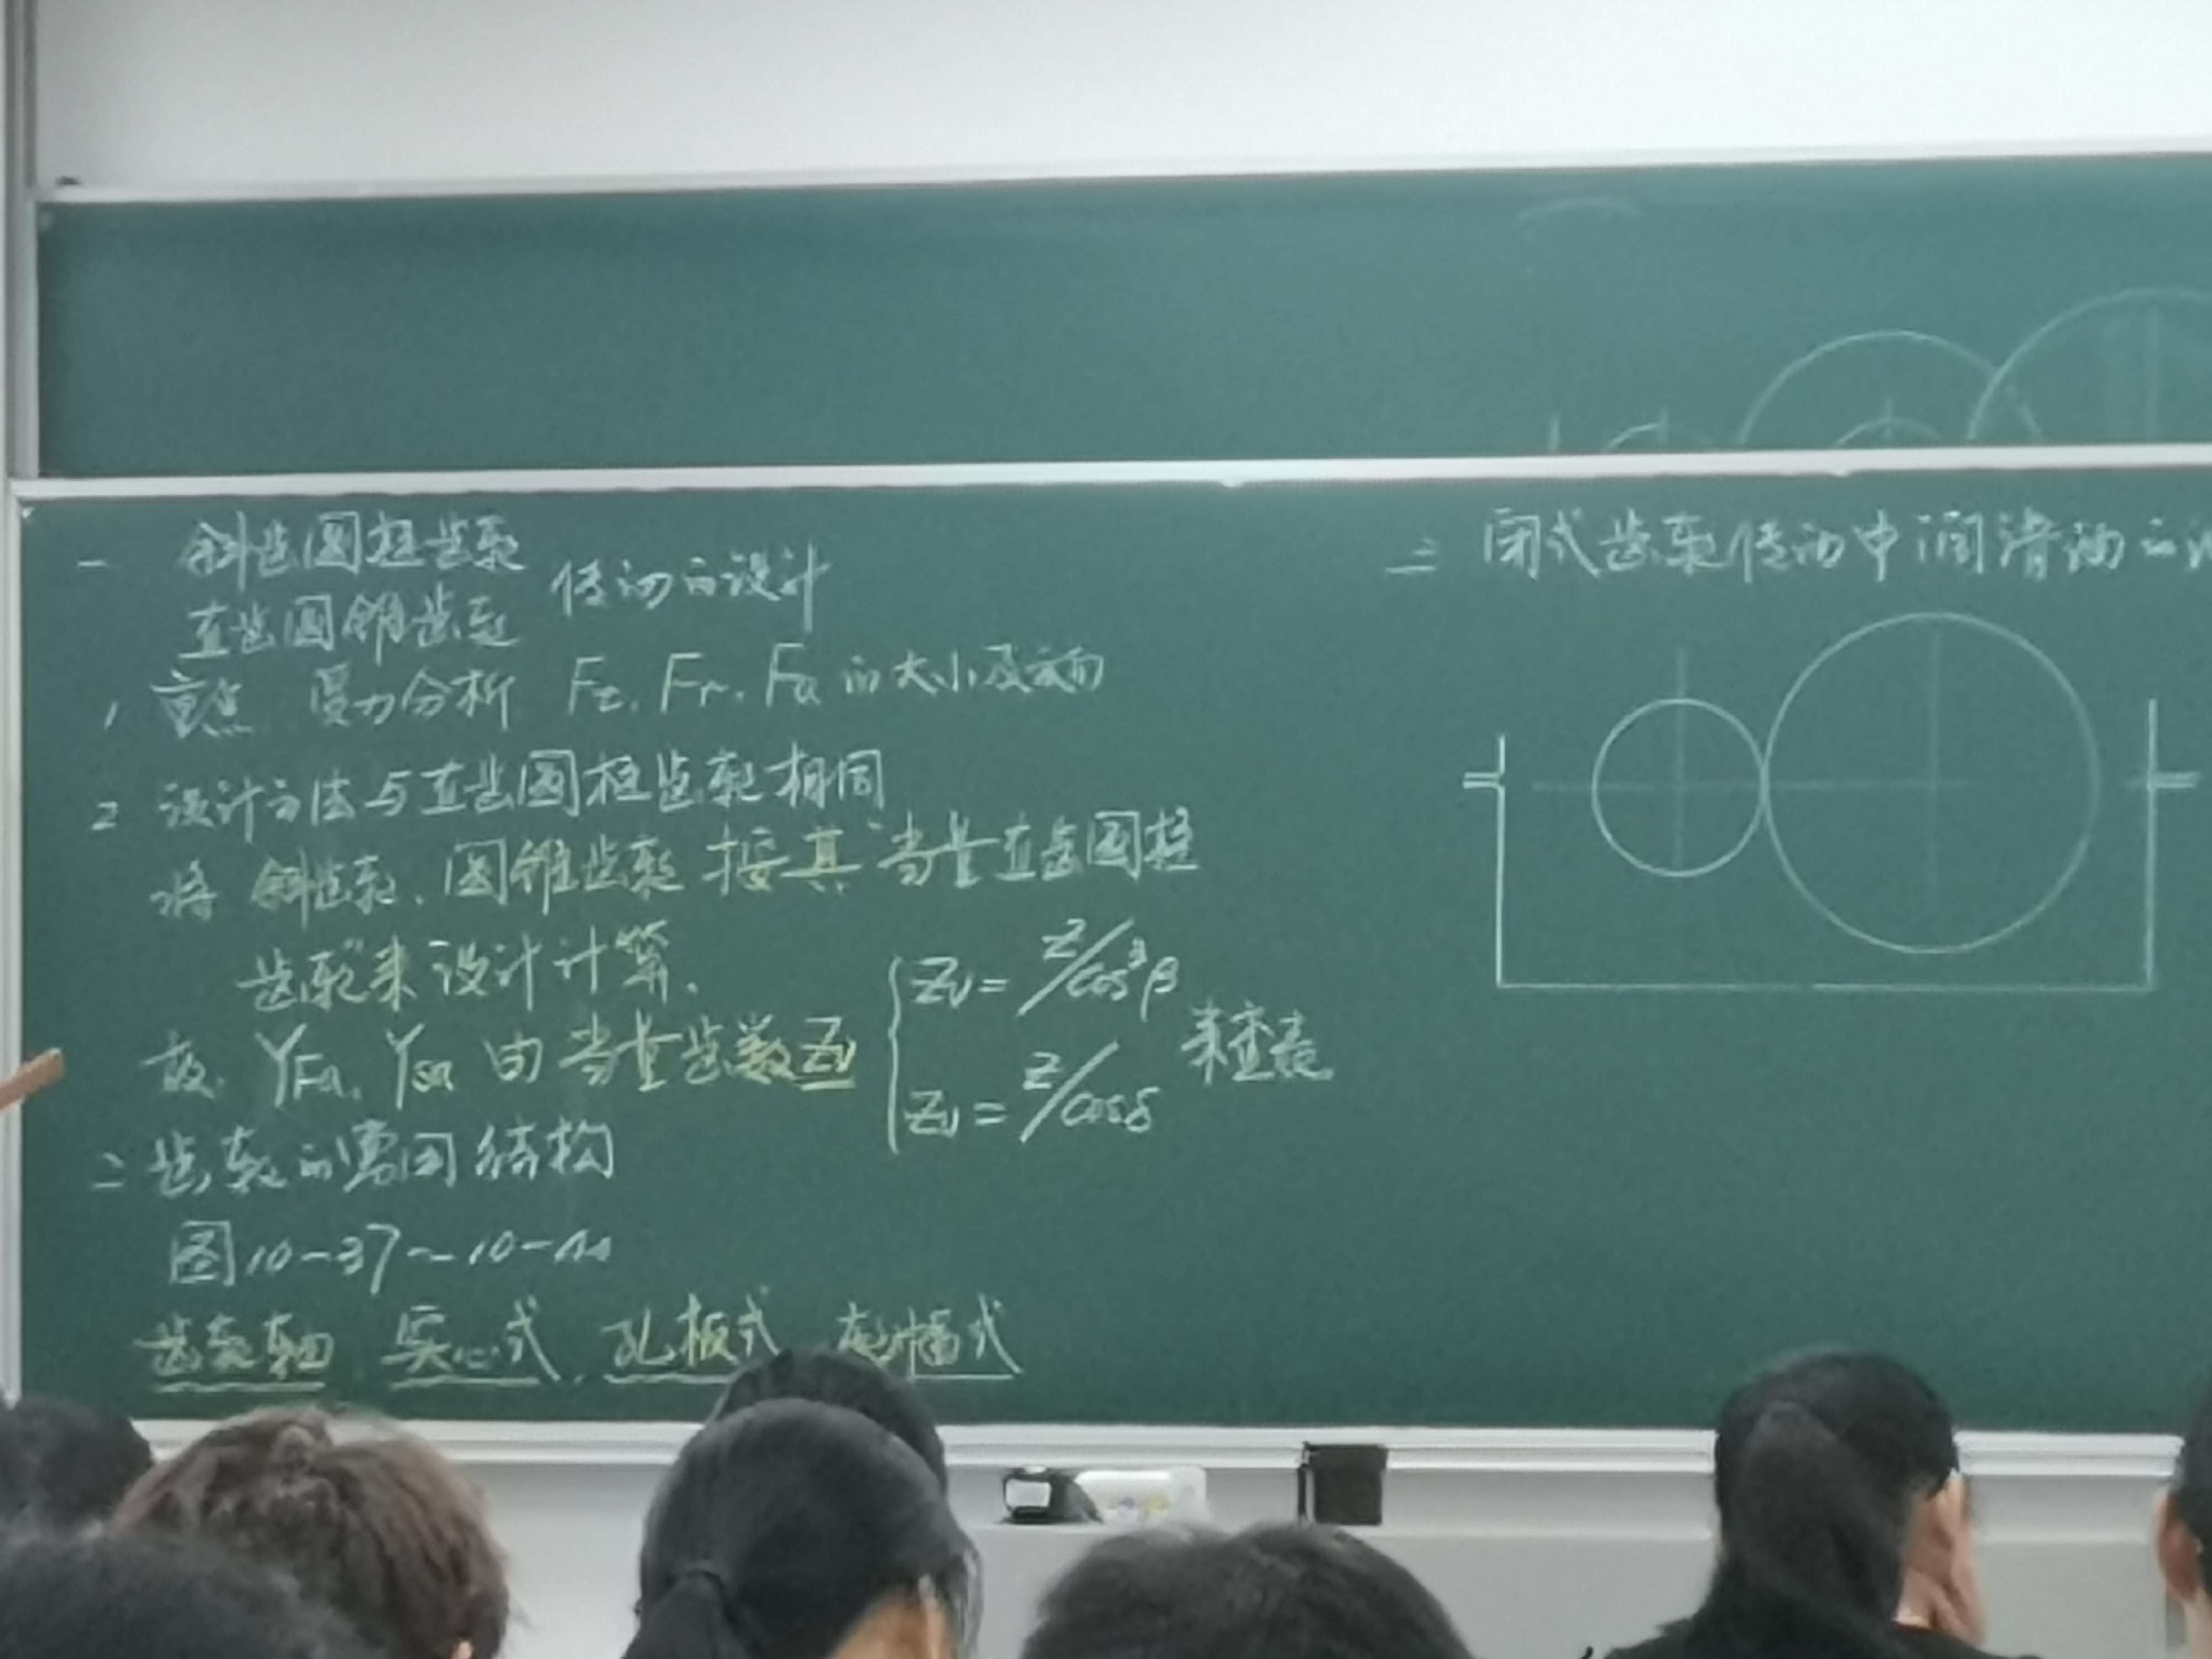 一 斜齿圆柱齿轮
直齿圆锥齿轮 传动的设计
1, 重点 受力分析 Ft, Fr, Fa 的大小及方向
2 设计方法与直齿圆柱齿轮相同
将 斜齿轮、圆锥齿轮 按其“当量直齿圆柱
齿轮”来设计计算.
故 YFa, YSa 由 当量齿数 Zv { Zv = Z/cos³β
Zv = Z/cosδ 来查表
二 齿轮的常用结构
图10-37~10-
齿轮轴 实心式, 孔板式 轮幅式
三 闭式齿轮传动中润滑油的